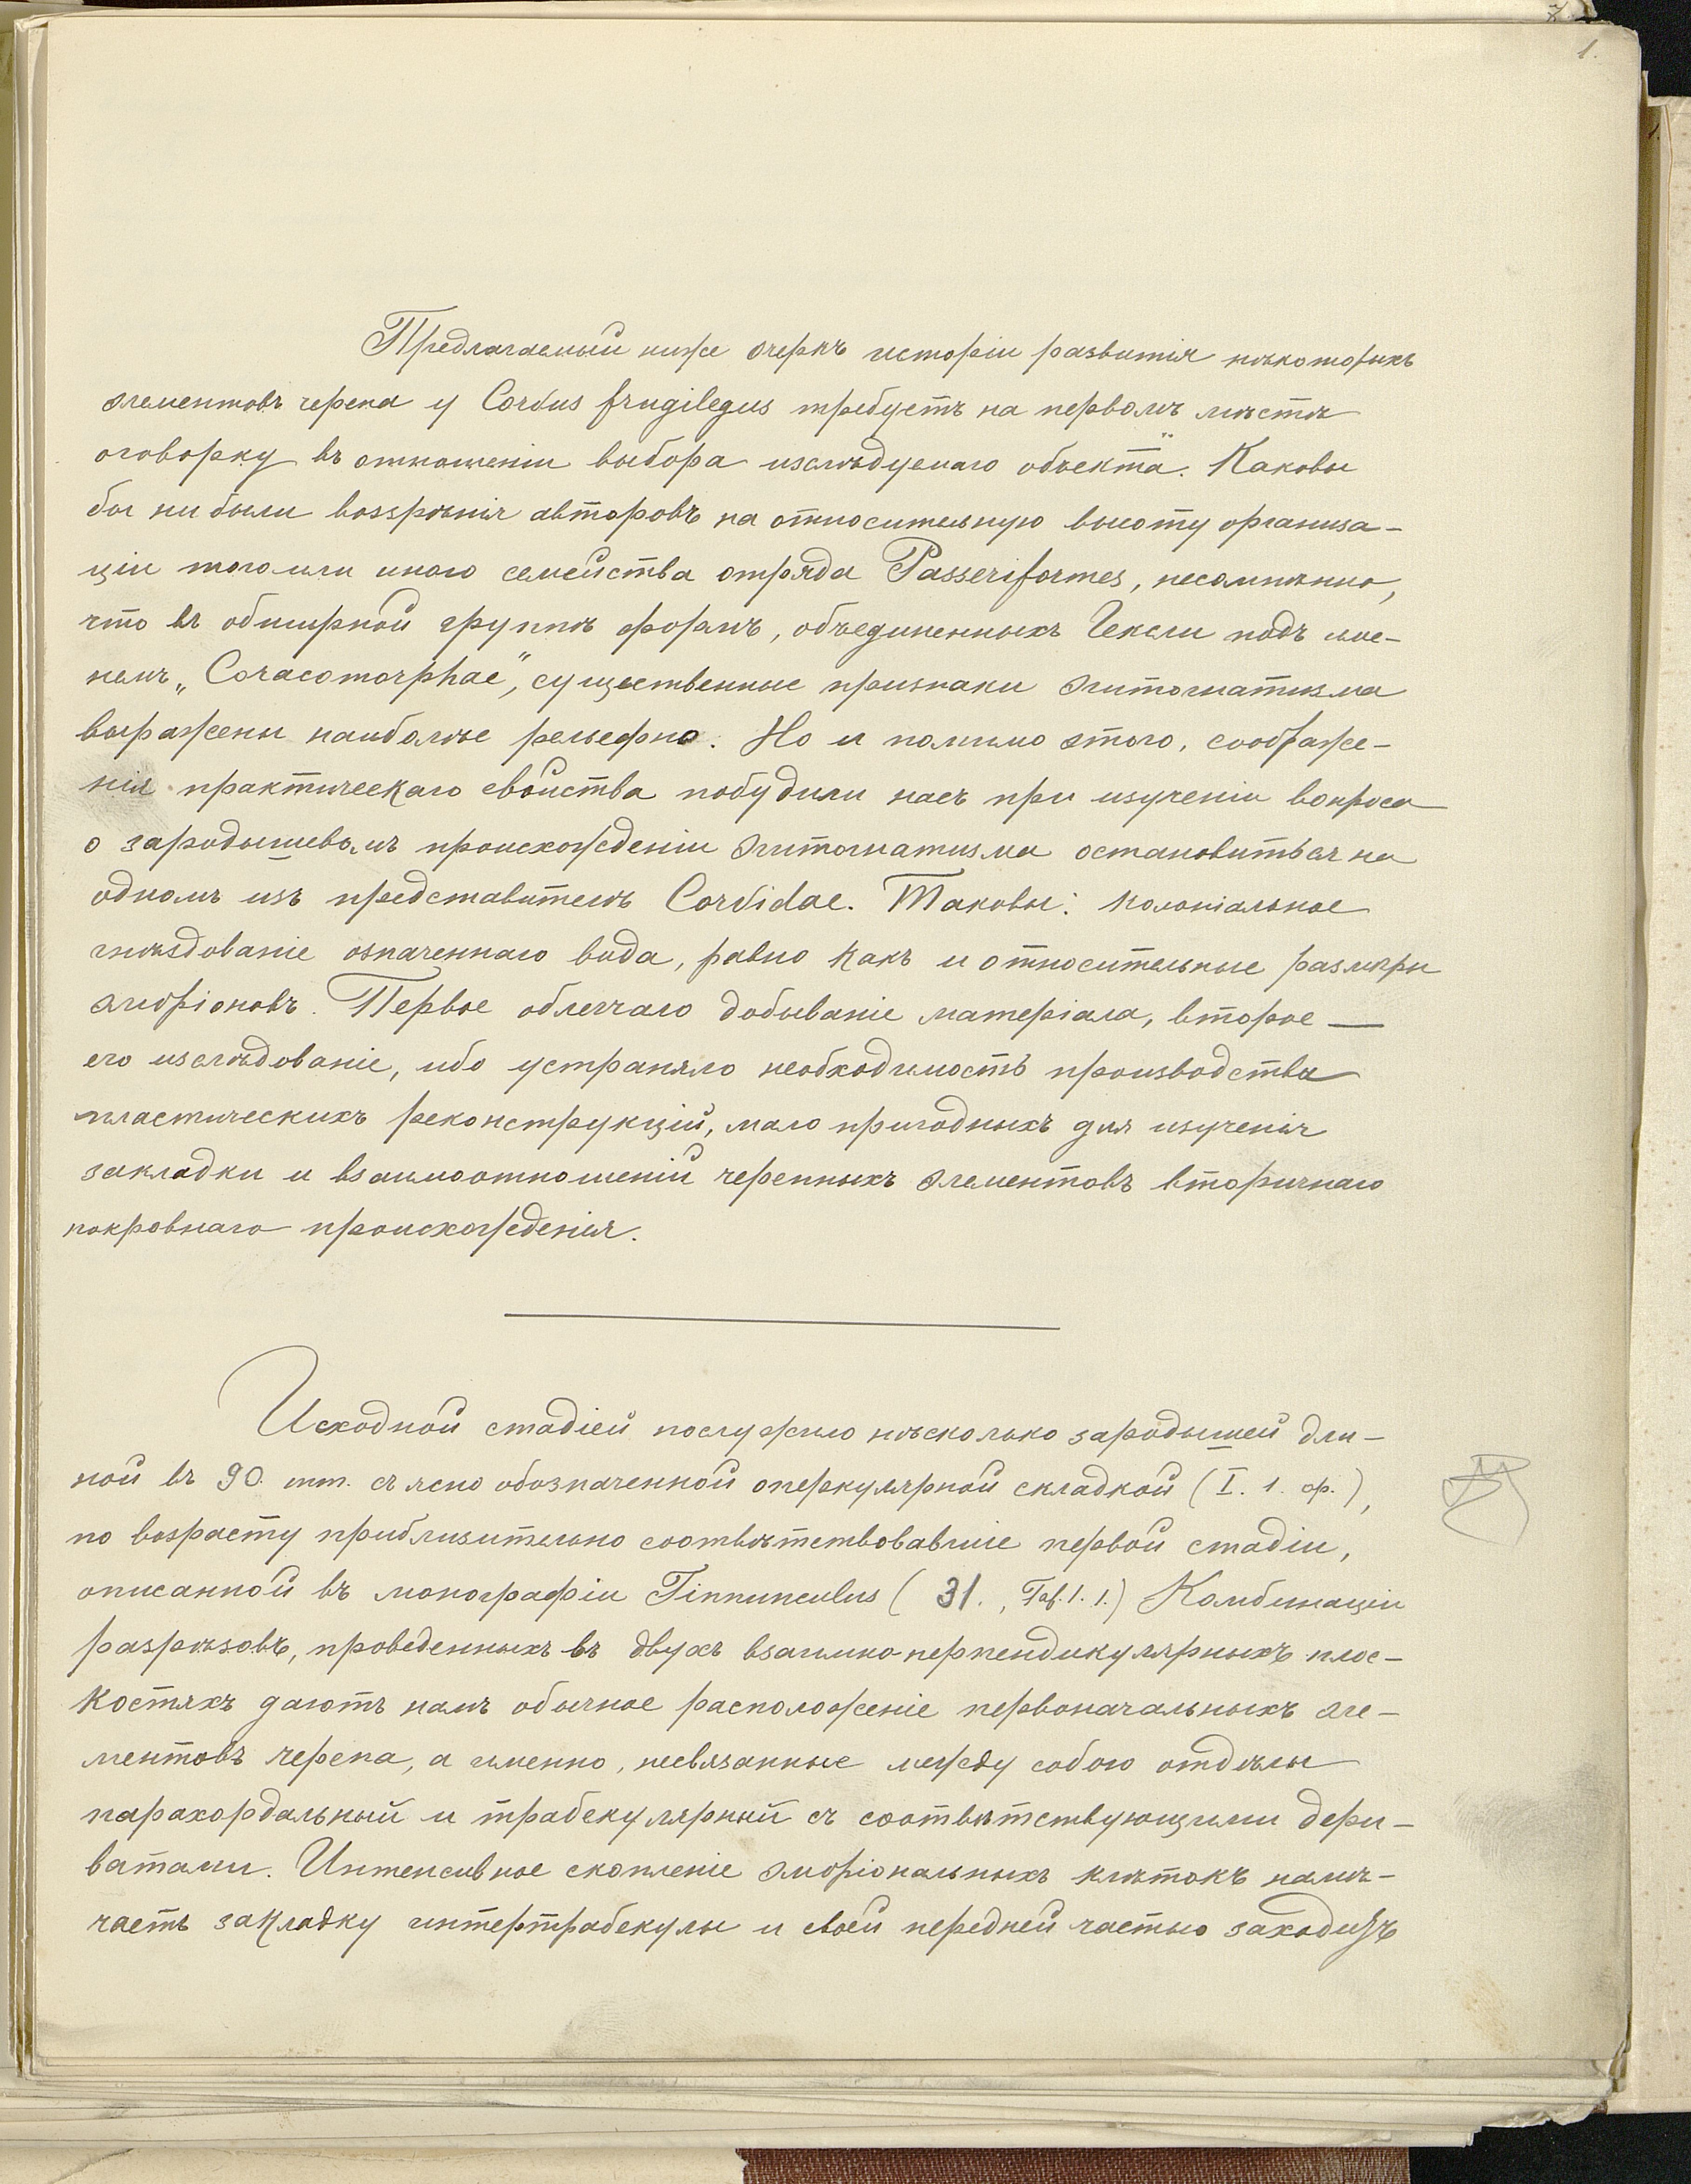 1.
Предлагаемый ниже очеркъ исторіи развитія нѣкоторыхъ
элементовъ черепа у Corvus frugilegus требуетъ на первомъ мѣстѣ
оговорку въ отношеніи выбора изслѣдуемаго объекта. Каковы
бы ни были воззрѣнія авторовъ на относительную высоту организа-
ціи того или иного семейства отряда Passeriformes, несомнѣнно,
что въ обширной группѣ формъ, объединенныхъ Гексли подъ име-
немъ „Coracomorphae", существенные признаки эгитогнатизма
выражены наиболѣе рельефно. Но и помимо этого, соображе-
нія практическаго свойства побудили насъ при изученіи вопроса
о зародышевомъ происхожденіи эгитогнатизма остановиться на
одномъ изъ представителей Corvidae. Таковы: колоніальное
гнѣздованіе означеннаго вида, равно какъ и относительные размѣры
эмбріоновъ. Первое облегчало добываніе матеріала, второе —
его изслѣдованіе, ибо устраняло необходимость производства
пластическихъ реконструкцій, мало пригодныхъ для изученія
закладки и взаимоотношеній черепныхъ элементовъ вторичнаго
покровнаго происхожденія.
Исходной стадіей послужило нѣсколько зародышей дли-
ной въ 90. mm. съ ясно обозначенной оперкулярной складкой (I. 1. op.),
по возрасту приблизительно соотвѣтствовавшіе первой стадіи,
описанной въ монографіи Tinnunculus (31., Taf. 1. 1.) Комбинаціи
разрѣзовъ, проведенныхъ въ двухъ взаимно-перпендикулярныхъ плос-
костяхъ даютъ намъ обычное расположеніе первоначальныхъ эле-
ментовъ черепа, а именно, несвязанные между собою отдѣлы
парахордальный и трабекулярный съ соотвѣтствующими дери-
ватами. Интенсивное скопленіе эмбріональныхъ клѣтокъ намѣ-
чаетъ закладку интертрабекулы и своей передней частью заходитъ